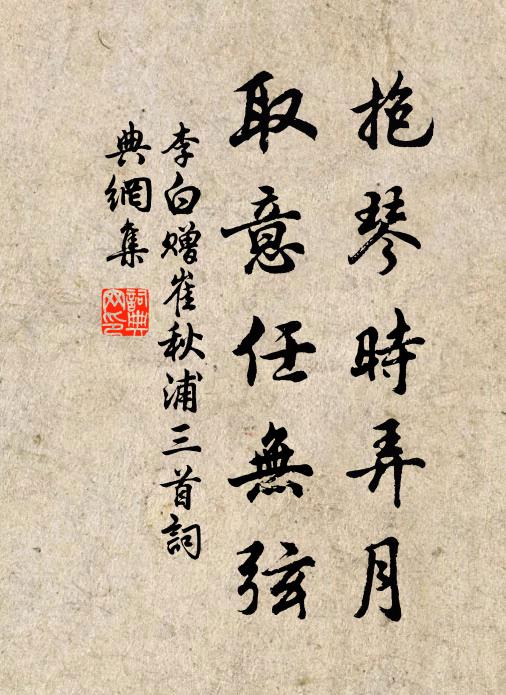 抱琴時弄月
取意任無弦
李白贈崔秋浦三首詞
典網集
詞典
网印